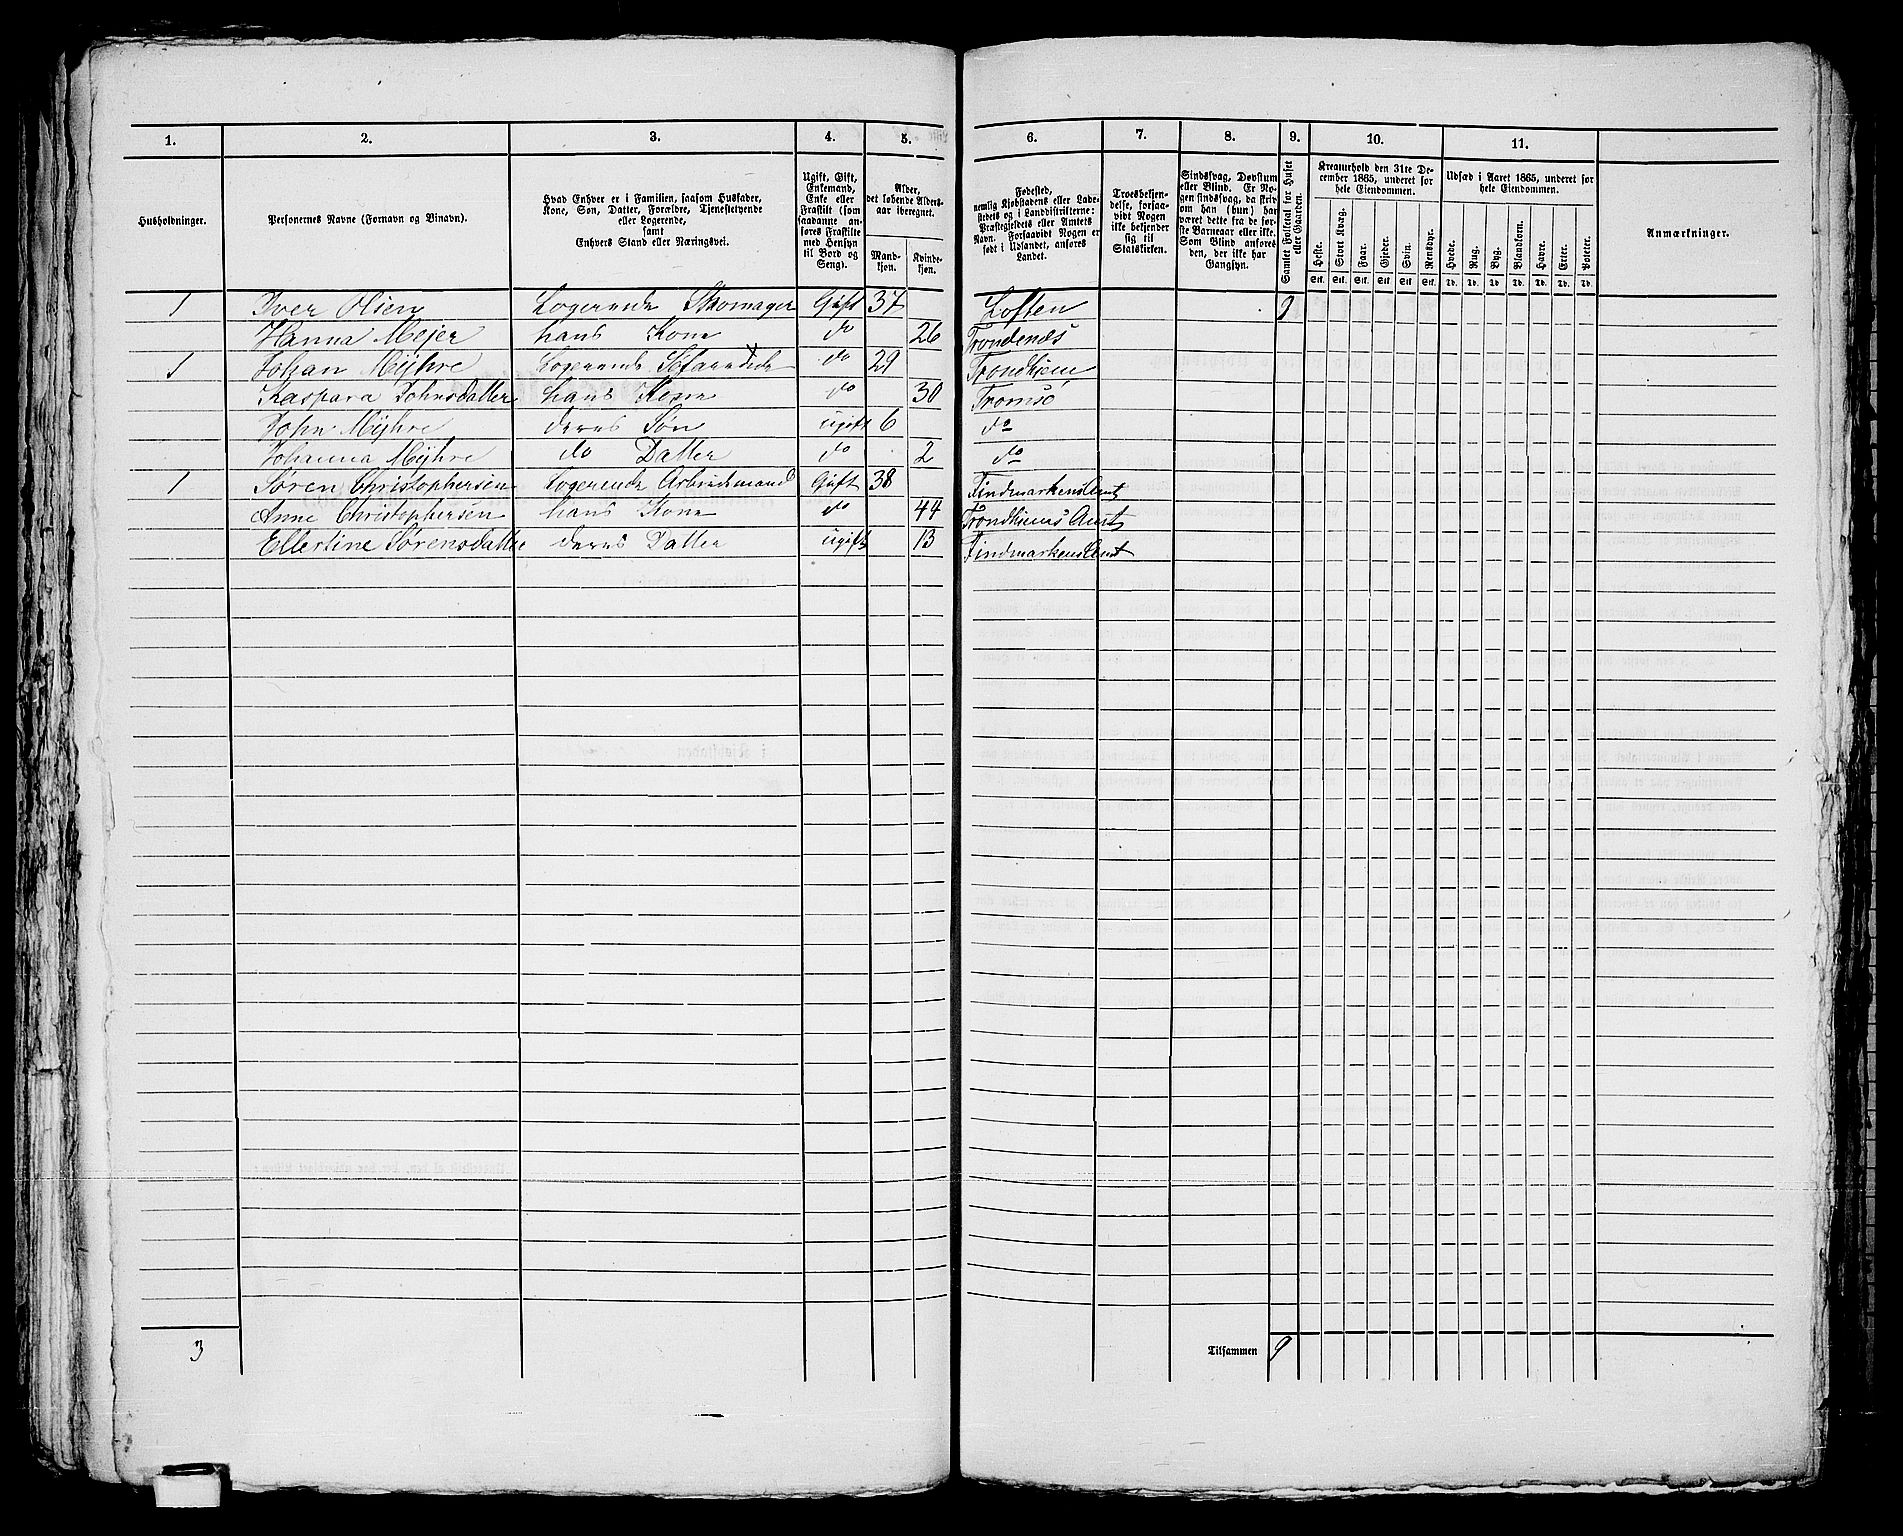 1. 2. 3. 4. 5. 6. 7. 8. 9. 10. 11.
Husholdninger.
Personernes Navne (Fornavn og Binavn).
Hvad Enhver er i Familien, saasom Husfader,
Kone, Søn, Datter, Forældre, Tjenestetyende
eller Logerende,
samt
Enhvers Stand eller Næringsvei.
Ugift, Gift,
Enkemand,
Enke eller
Fraskilt (som
saadanne an-
føres Fraskilte
med Hensyn
til Bord og
Seng).
Alder,
det løbende Alders-
aar iberegnet.
Mand-
kjøn.
Kvinde-
kjøn.
Fødested,
nemlig Kjøbstadens eller Lade-
stedets og i Landdistrikterne:
Præstegjeldets eller Amtets
Navn. Forsaavidt Nogen er
født i Udlandet, anføres
Landet.
Troesbekjen-
delse, forsaa-
vidt Nogen
ikke bekjender
sig til
Statskirken.
Sindssvag, Døvstum
eller Blind. Er No-
gen sindssvag, da skriv
om han (hun) har
været dette fra de før-
ste Barneaar eller ikke.
Som Blind anføres
den, der ikke har
Gangsyn.
Samlet Folketal for Huset
eller Gaarden.
Kreaturhold den 31te De-
cember 1865, underet for
hele Eiendommen.
Heste. Stort Kvæg. Faar. Gjeder. Svin. Rensdyr.
Stk. Stk. Stk. Stk. Stk. Stk.
Udsæd i Aaret 1865, underet for
hele Eiendommen.
Hvede. Rug. Byg. Blandkorn. Havre. Erter. Poteter.
Td. Td. Td. Td. Td. Td. Td.
Anmærkninger.
1 Iver Olsen Logerende Skomager Gift 37 Loften 9
Hanna Mejer hans Kone do 26 Trondenæs
1 Johan Mÿhre Logerende Søfarende do 29 Trondhjem
Kaspara Johnsdatter hans Kone do 30 Tromsö
John Mÿhre deres Søn ugift 6 do
Johanna Mÿhre do Datter do 2 do
1 Søren Christophersen Logerende Arbeidsmand Gift 38 FindmarkensAmt
Anne Christophersen hans Kone do 44 Trondhjems Amt
Ellertine Sørensdatter deres Datter ugift 13 FindmarkensAmt
3 Tilsammen 9